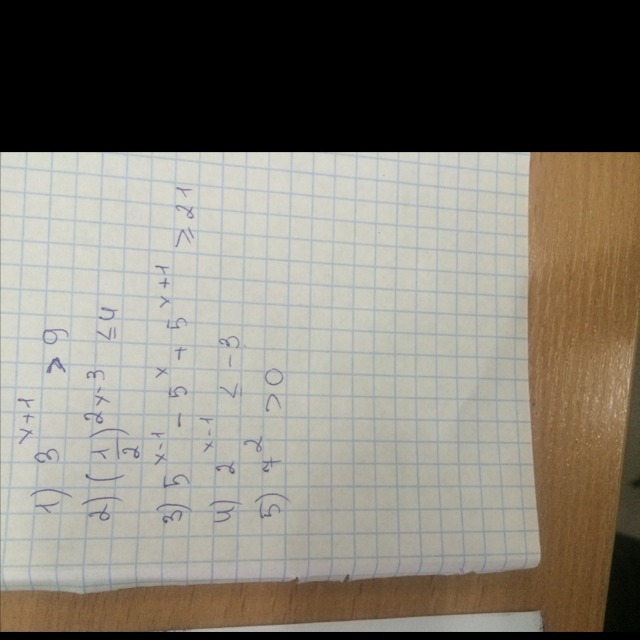 1) 3^{x+1} > 9
2) (1/2)^{2x-3} ≤ 4
3) 5^{x-1} - 5^x + 5^{x+1} ≥ 21
4) 2^{x-1} < -3
5) 7^2 > 0